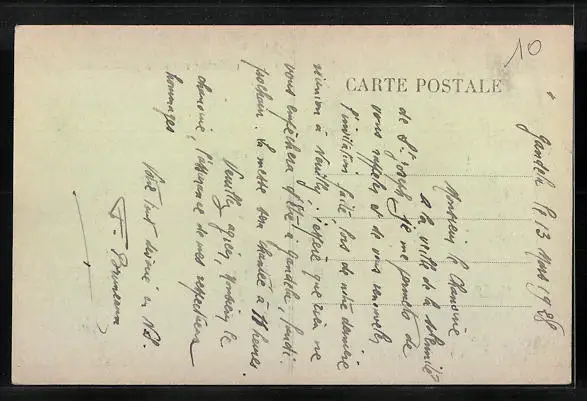 10
CARTE POSTALE
Gandelu le 13 Mars 1928
Monsieur le Chanoine
A la veille de la solennité
de St Joseph je me permets de
vous rappeler et de vous renouveler
l'invitation faite lors de notre dernière
réunion à Neuilly, j'espère que rien ne
vous empêchera d'être à Gandelu, lundi
prochain. la messe sera chantée à heures.
Veuillez agréer, Monsieur le
chanoine, l'assurance de mes respectueux
hommages
Votre tout dévoué en N.S.